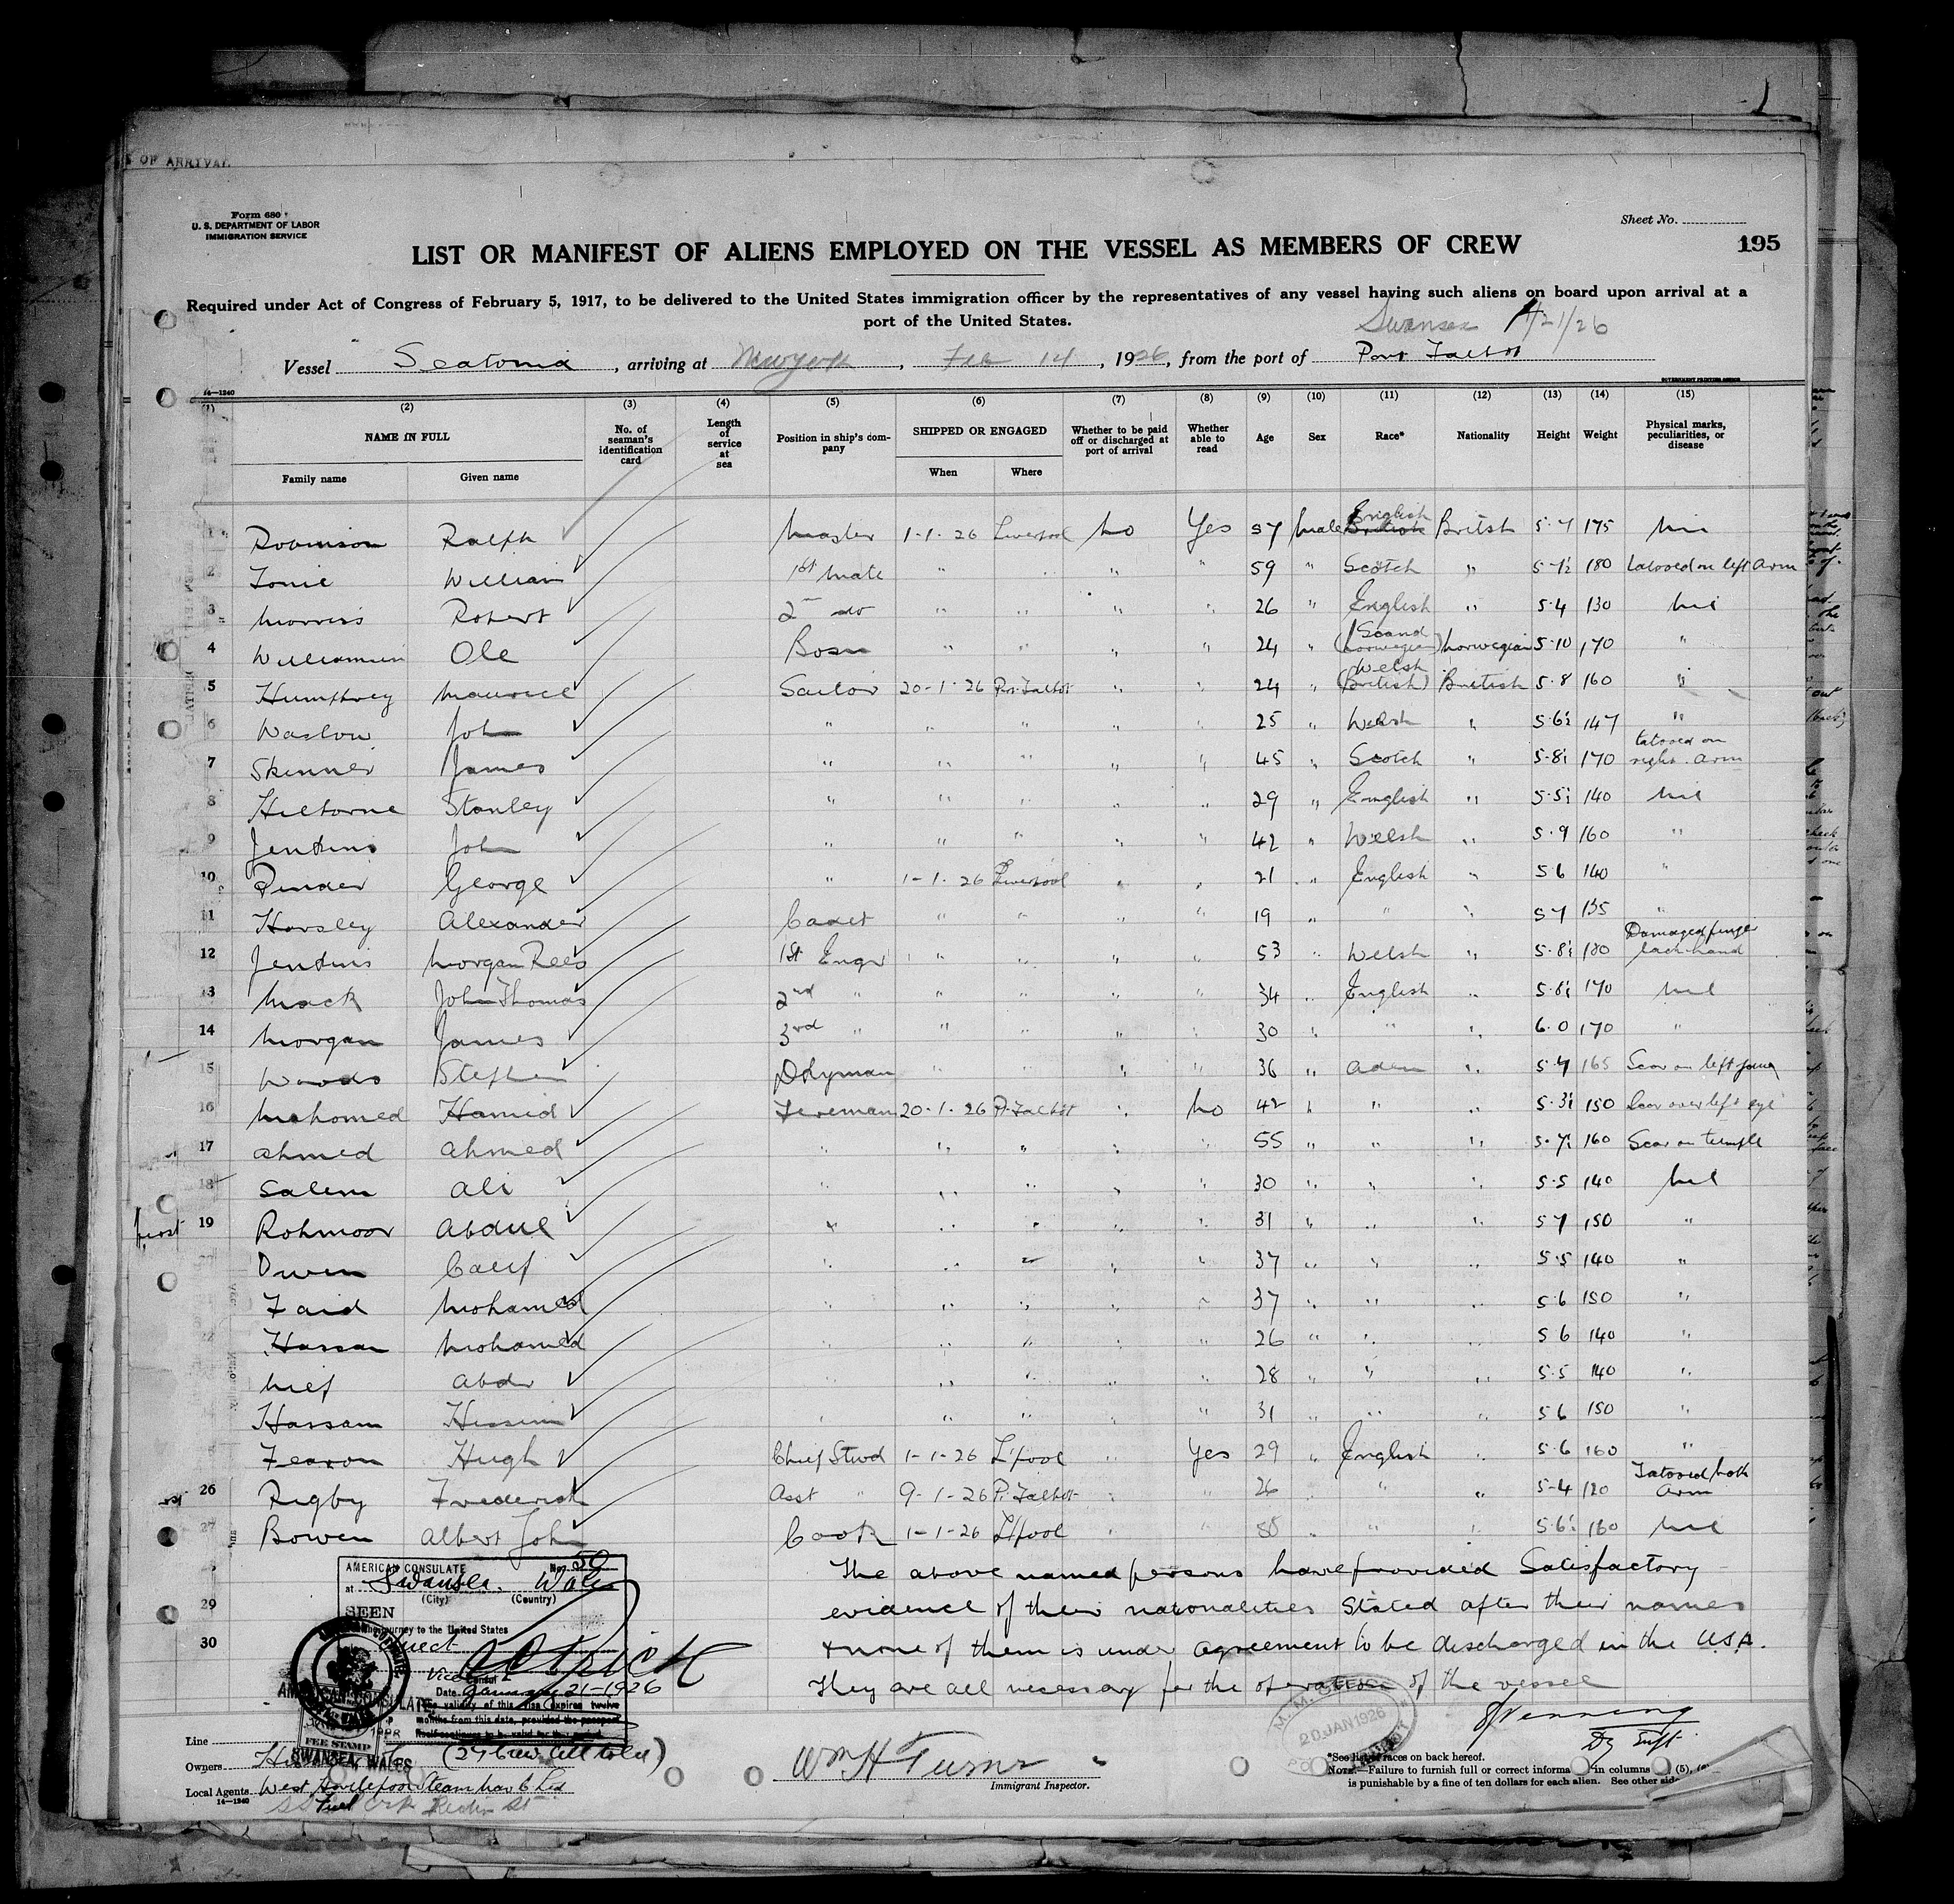 S OF ARRIVAL
Form 680
U. S. DEPARTMENT OF LABOR
IMMIGRATION SERVICE
Sheet No.
195
LIST OR MANIFEST OF ALIENS EMPLOYED ON THE VESSEL AS MEMBERS OF CREW
Required under Act of Congress of February 5, 1917, to be delivered to the United States immigration officer by the representatives of any vessel having such aliens on board upon arrival at a
port of the United States.
Swansea 1/21/26
Vessel Seatonia, arriving at New York, Feb 14, 1926, from the port of Port Talbot
14-1240
GOVERNMENT PRINTING OFFICE
(1) (2) (3) (4) (5) (6) (7) (8) (9) (10) (11) (12) (13) (14) (15)
NAME IN FULL No. of seaman's identification card Length of service at sea Position in ship's company SHIPPED OR ENGAGED Whether to be paid off or discharged at port of arrival Whether able to read Age Sex Race* Nationality Height Weight Physical marks, peculiarities, or disease
Family name Given name When Where
1 Robinson Ralph Master 1-1-26 Liverpool No Yes 37 Male English British British 5-7 175 Nil
2 William 1st Mate " " " " 59 " Scotch " 5-7½ 180 tatooed on left arm
3 Morris Robert 2 do " " " " 26 " English " 5-4 130 Nil
4 Ole Bosn " " " " 24 " (Scand Norwegian) Norwegian 5-10 170 "
5 Humphrey Maurice Sailor 20-1-26 Pt. Talbot " " 24 " Welsh (British) British 5-8 160 "
6 John " " " " " 25 " Welsh " 5-6½ 147 "
7 Skinner James " " " " " 45 " Scotch " 5-8½ 170 tatooed on right arm
8 Stanley " " " " " 29 " English " 5-5½ 140 Nil
9 Jenkins John " " " " " 42 " Welsh " 5-9 160 "
10 Pinder George " 1-1-26 Liverpool " " 21 " English " 5 6 140 "
11 Horsley Alexander Cadet " " " " 19 " " " 5 7 135 "
12 Jenkins Morgan Rees 1st Engr " " " " 53 " Welsh " 5-8½ 180 Damaged finger each hand
13 Mack John Thomas 2nd " " " " " 34 " English " 5-8½ 170 Nil
14 Morgan James 3rd " " " " " 30 " " " 6.0 170 "
15 Woods Stephen Dkyman " " " " 36 " Aden " 5-7 165 Scar on left
16 Mahomed Hamid Fireman 20-1-26 Pt. Talbot " No 42 " " " 5-3½ 150 Scar over left eye
17 Ahmed Ahmed " " " " " 55 " " " 5-7½ 160 Scar on temple
18 Salem Ali " " " " " 30 " " " 5-5 140 Nil
19 Rohmoor Abdul " " " " " 31 " " " 5 7 150 "
Owen Calif " " " " " 37 " " " 5-5 140 "
Faid Mohamed " " " " " 37 " " " 5 6 150 "
22 Hassan Mohamed " " " " " 26 " " " 5 6 140 "
Abdu " " " " " 28 " " " 5-5 140 "
Hassam " " " " " 31 " " " 5 6 150 "
Fearon Hugh Chief Stwd 1-1-26 L'pool " Yes 29 " English " 5-6 160 "
26 Rigby Frederick Asst " 9-1-26 Pt. Talbot " " 26 " " " 5-4 120 Tatooed both arm
27 Bowen Albert John Cook 1-1-26 L'pool " " " " " 5-6½ 160 Nil
The above named persons have provided satisfactory
29 evidence of their nationalities stated after their names
30 & none of them is under agreement to be discharged in the U.S.A.
They are all necessary for the operation of the vessel
AMERICAN CONSULATE No. 50
at Swansea, Wales
(City) (Country)
SEEN
journey to the United States
Direct
Vice Consul
Date January 21-1926
The validity of this visa expires twelve
months from this date, provided the passport
itself continues to be valid for that period.
AMERICAN CONSULATE
FEE STAMP
SWANSEA, WALES
M. M. OFFICE
20 JAN 1926
PORT TALBOT
Line
Owners
(27 crew all told)
Local Agents West Hartlepool Steam Nav Co Ltd
14-1240
Wm H Turner
Immigrant Inspector.
Dy Supt
*See list of races on back hereof.
NOTE.—Failure to furnish full or correct informa in columns (5),
is punishable by a fine of ten dollars for each alien. See other side